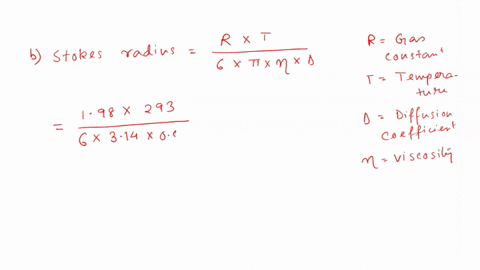 b) Stokes radius = R × T / 6 × π × η × D
= 1.98 × 293 / 6 × 3.14 × 0.
R = Gas
constant
T = Tempera-
ture
D = Diffusion
coefficient
η = viscosity